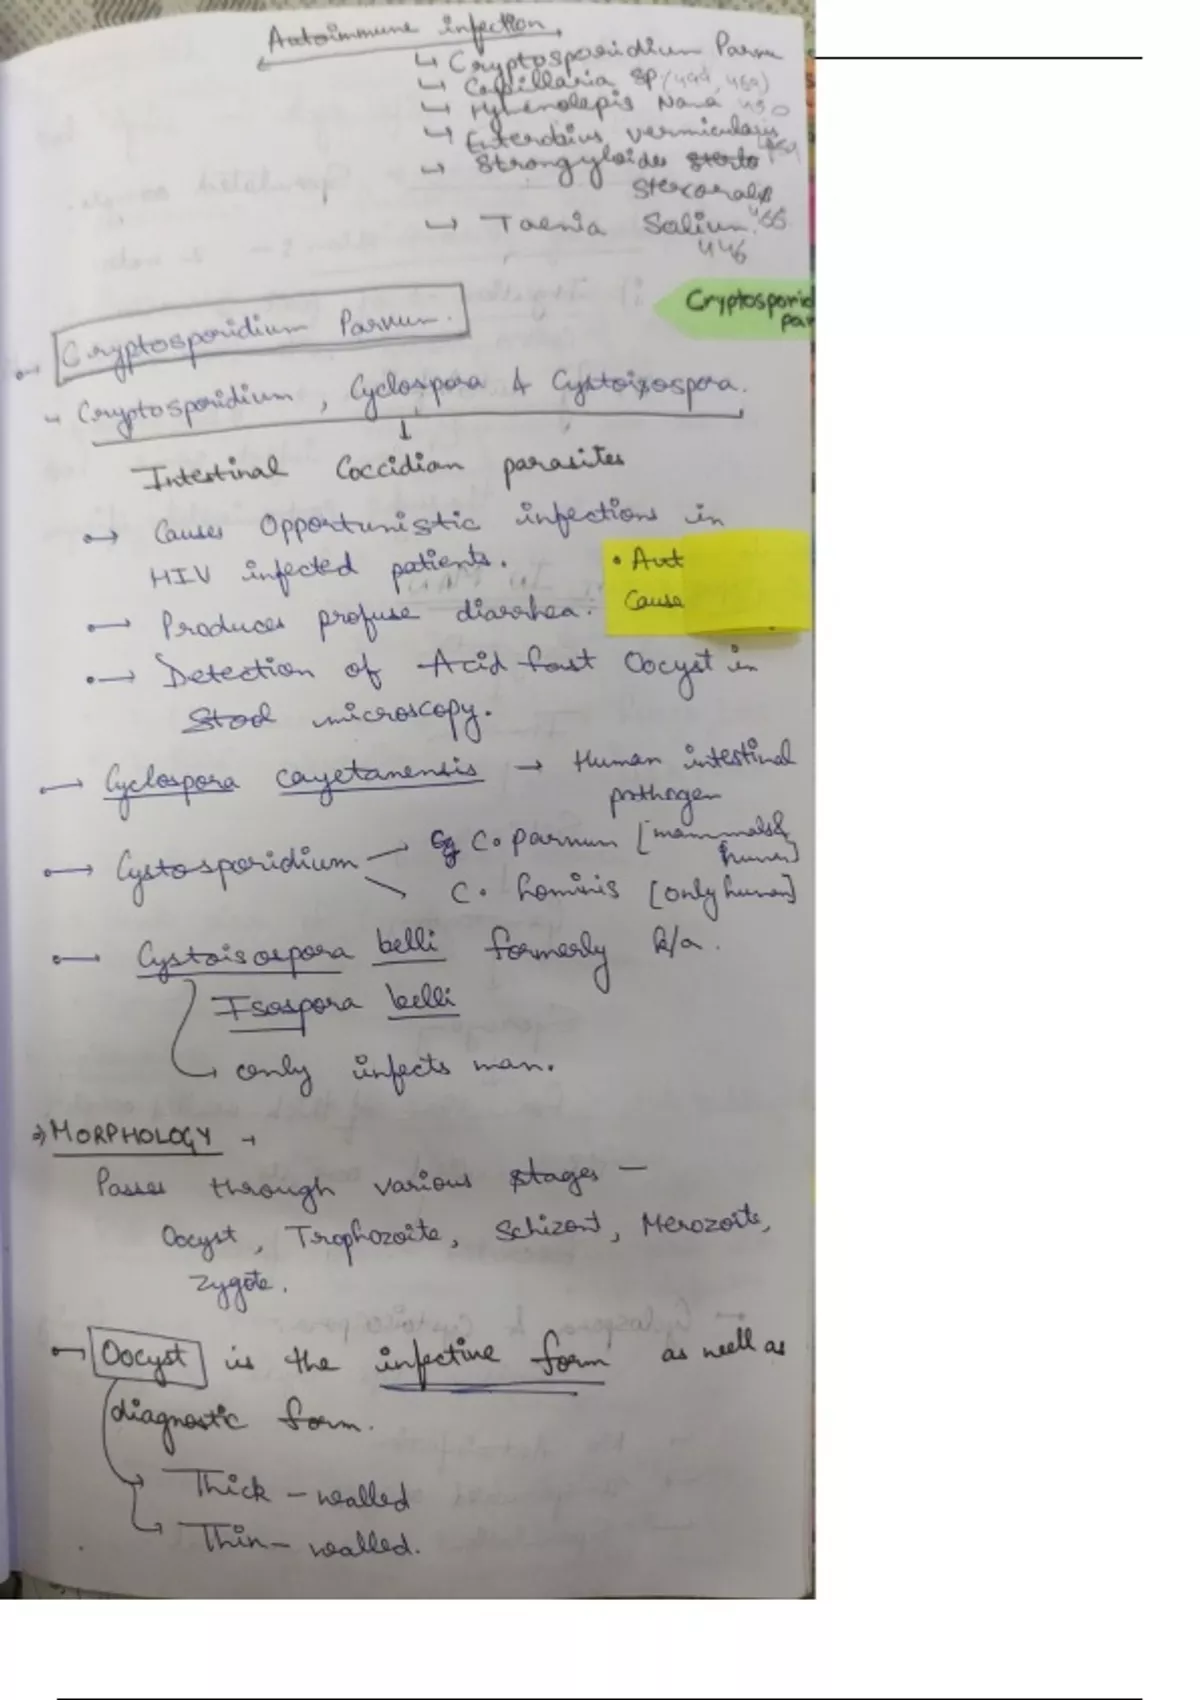 Autoimmune infection
↳ Cryptosporidium Parvu
↳ Capillaria sp (494, 469)
↳ Hymenolepis Nana 450
↳ Enterobius vermicularis
459
↳ Strongyloides sterlo
Stercoralis
466
↳ Taenia Solium.
446
Cryptosporid
par
Cryptosporidium Parvum.
↳ Cryptosporidium, Cyclospora & Cystoisospora.
↓
Intestinal Coccidian parasites
→ Causes Opportunistic infections in
HIV infected patients.
• Aut
Cause
→ Produces profuse diarrhea.
→ Detection of Acid fast Oocyst in
Stool microscopy.
→ Cyclospora cayetanensis → Human intestinal
pathogen
→ Cystosporidium → Eg C. parvum [mammals &
human]
C. hominis [only human]
→ Cystoisospora belli formerly k/a.
Isospora belli
↳ only infects man.
⇒ MORPHOLOGY →
Passes through various stages —
Oocyst, Trophozoite, Schizont, Merozoite,
zygote.
→ Oocyst is the infective form as well as
diagnostic form.
→ Thick - walled
↳ Thin - walled.